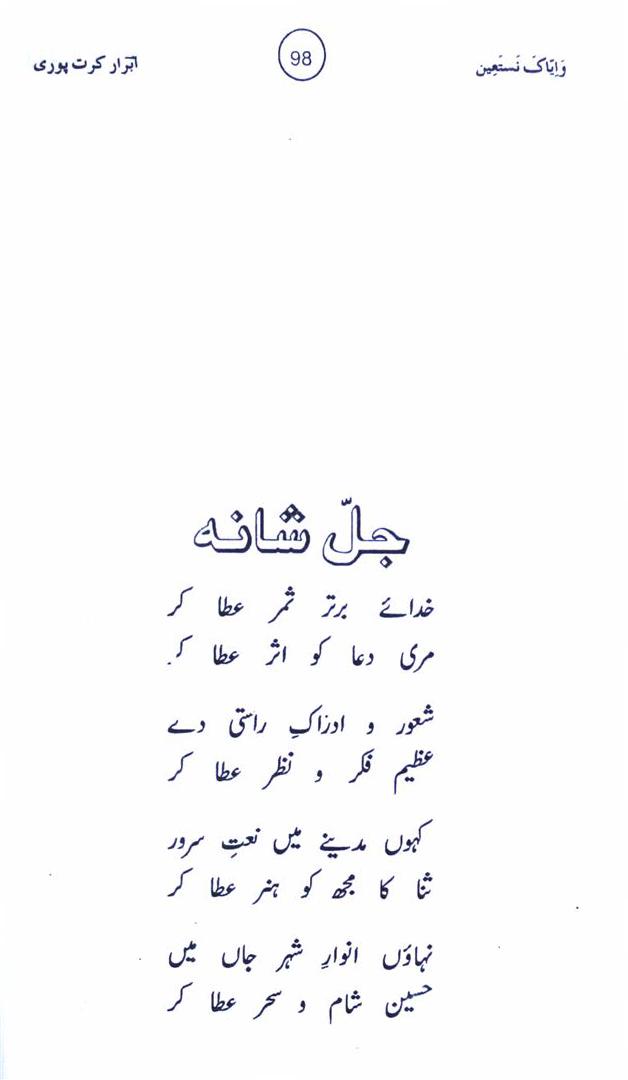 وَاِیّاکَ نَستَعِین
98
ابرار کرت پوری
جلّ شانہ
خدائے برتر ثمر عطا کر
مری دعا کو اثر عطا کر
شعور و ادراکِ راستی دے
عظیم فکر و نظر عطا کر
کہوں مدینے میں نعتِ سرور
ثنا کا مجھ کو ہنر عطا کر
نہاؤں انوارِ شہر جاں میں
حسین شام و سحر عطا کر